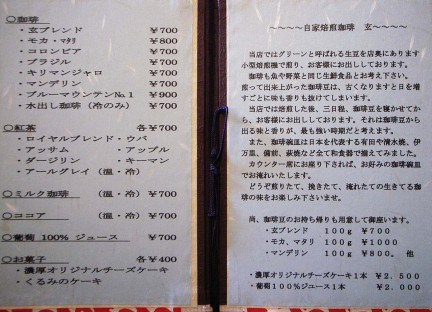 ○珈琲
・玄ブレンド ￥700
・モカ・マタリ ￥800
・コロンビア ￥700
・ブラジル ￥700
・キリマンジャロ ￥700
・マンデリン ￥700
・ブルーマウンテン№1 ￥900
・水出し珈琲（冷のみ） ￥700
○紅茶 各￥700
・ロイヤルブレンド・ウバ
・アッサム ・アップル
・ダージリン ・キーマン
・アールグレイ（温・冷）
○ミルク珈琲 （温・冷）￥700
○ココア （温・冷）￥700
○葡萄 100% ジュース ￥700
○お菓子 各￥400
・濃厚オリジナルチーズケーキ
・くるみのケーキ
～～～～自家焙煎珈琲 玄～～～～
当店ではグリーンと呼ばれる生豆を店奥にあります
小型焙煎機で煎り、お客様にお出ししております。
珈琲も魚や野菜と同じ生鮮食品とお考え下さい。
煎って出来上がった珈琲豆は、古くなりますと日を増
すごとに味も香りも抜けてしまいます。
当店では焙煎した後、三日程、珈琲豆を寝かせてか
ら、お客様にお出ししております。それは珈琲豆から
出る味と香りが、最も強い時期だと考えます。
また、珈琲碗皿は日本を代表する有田や清水焼、伊
万里、備前、萩焼など全て和食器で揃えてみました。
カウンター席にお座り下されば、お好みの珈琲碗皿
でお淹れいたします。
どうぞ煎りたて、挽きたて、淹れたての生きてる珈
琲の味をお楽しみ下さいませ。
尚、珈琲豆のお持ち帰りも用意して御座います。
・玄ブレンド 100g ￥700
・モカ、マタリ 100g ￥1000
・マンデリン 100g ￥800。 他
・濃厚オリジナルチーズケーキ1本 ￥2．500
・葡萄100%ジュース1本 ￥2．000